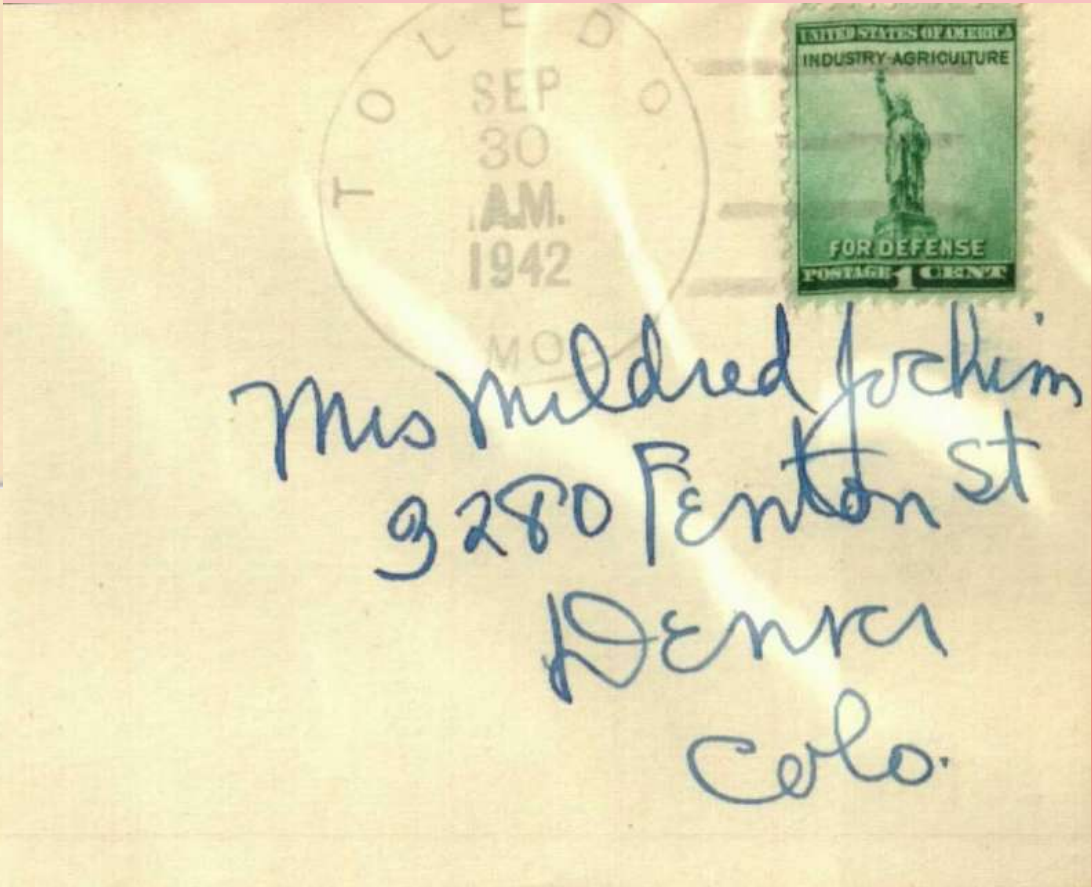 TOLEDO
SEP
30
A.M.
1942
MO.
UNITED STATES OF AMERICA
INDUSTRY AGRICULTURE
FOR DEFENSE
POSTAGE 1 CENT
Mrs Mildred Jochim
3280 Fenton St
Denver
Colo.